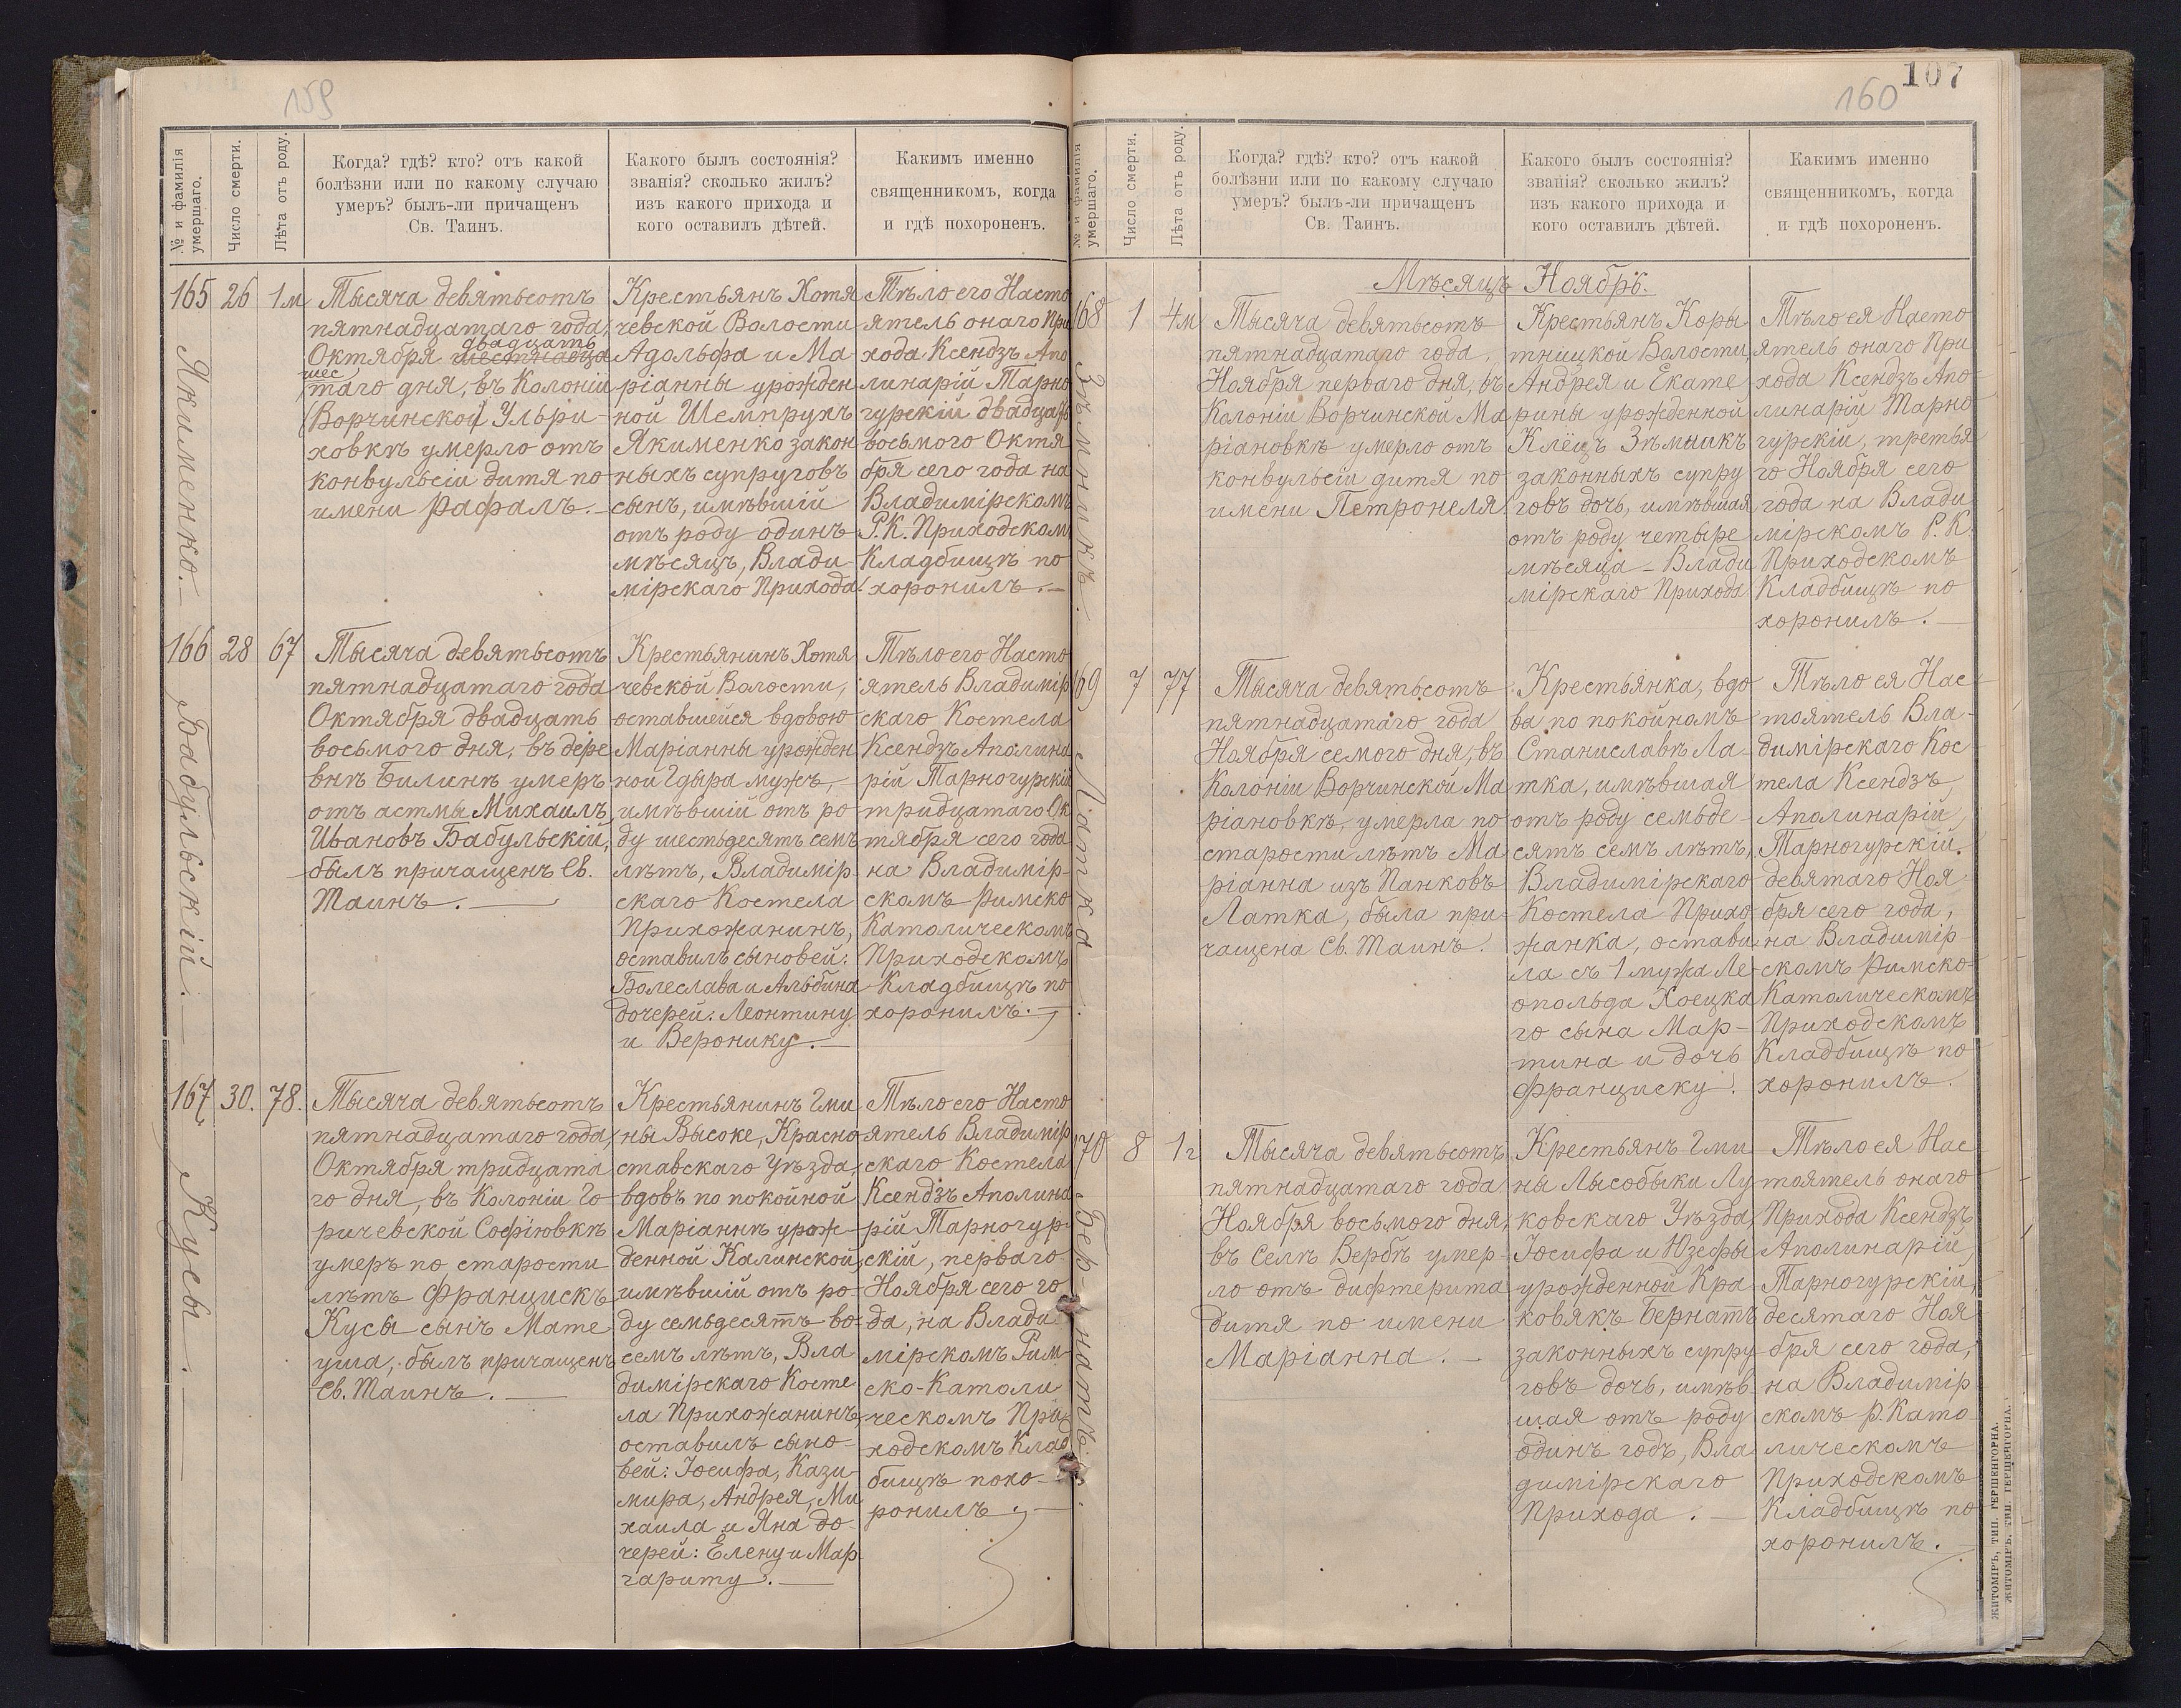 159
№ и фамилія умершаго.
Число смерти.
Лѣта отъ роду.
Когда? гдѣ? кто? отъ какой
болѣзни или по какому случаю
умеръ? былъ-ли причащенъ
Св. Таинъ.
Какого былъ состоянія?
званія? сколько жилъ?
изъ какого прихода и
кого оставилъ дѣтей.
Какимъ именно
священникомъ, когда
и гдѣ похороненъ.
165
Якименко.
26
1м
Тысяча девятьсотъ
пятнадцатаго года,
двадцать
Октября шестнадца
шес
таго дня, въ Колоніи
Ворчинской Ульри-
ховкѣ умерло отъ
конвульсіи дитя по
имени Рафалъ.
Крестьянъ Хотя
чевской Волости
Адольфа и Ма-
ріанны урожден
ной Шемпрухъ
Якименко закон
ныхъ супруговъ
сынъ, имѣвшій
отъ роду одинъ
мѣсяцъ, Влади-
мірскаго Прихода.
Тѣло его Насто
ятель онаго При
хода Ксендзъ Апо
линарій Тарно
гурскій двадцать
восьмого Октя
бря сего года на
Владимірскомъ
Р.К. Приходскомъ
Кладбищѣ по
хоронилъ.
166
Бабульскій.
28
67
Тысяча девятьсотъ
пятнадцатаго года
Октября двадцать
восьмого дня, въ дере
внѣ Билинѣ умеръ
отъ астмы Михаилъ
Ивановъ Бабульскій,
былъ причащенъ Св.
Таинъ.
Крестьянинъ Хотя
чевской Волости,
оставшейся вдовою
Маріанны урожден
ной Гдыра мужъ,
имѣвшій отъ ро-
ду шестьдесятъ семъ
лѣтъ, Владимір-
скаго Костела
Прихожанинъ,
оставилъ сыновей:
Болеслава и Альбина
дочерей: Леонтину
и Веронику.
Тѣло его Насто
ятель Владимір
скаго Костела
Ксендзъ Аполина
рій Тарногурскій
тридцатаго Ок
тября сего года
на Владимір-
скомъ Римско
Католическомъ
Приходскомъ
Кладбищѣ по
хоронилъ.
167
Кусы.
30.
78.
Тысяча девятьсотъ
пятнадцатаго года,
Октября тридцата
го дня, въ Колоніи Го
ричевской Софіювкѣ
умеръ по старости
лѣтъ Францискъ
Кусы сынъ Мате
уша, былъ причащенъ
Св. Таинъ.
Крестьянинъ Гми
ны Высоке, Красно
ставскаго Уѣзда,
вдовъ по покойной
Маріаннѣ урож-
денной Калинской,
имѣвшій отъ ро-
ду семьдесятъ во-
семъ лѣтъ, Вла
димірскаго Косте
ла Прихожанинъ,
оставилъ сыно-
вей: Іосифа, Кази-
мира, Андрея, Ми
хаила и Яна до-
черей: Елену и Мар-
гариту.
Тѣло его Насто
ятель Владимір
скаго Костела
Ксендзъ Аполина
рій Тарногур-
скій, перваго
Ноября сего го
да, на Влади-
мірскомъ Рим-
ско-Католи
ческомъ При
ходскомъ Клад
бищѣ похо-
ронилъ.
107
160
№ и фамилія умершаго.
Число смерти.
Лѣта отъ роду.
Когда? гдѣ? кто? отъ какой
болѣзни или по какому случаю
умеръ? былъ-ли причащенъ
Св. Таинъ.
Какого былъ состоянія?
званія? сколько жилъ?
изъ какого прихода и
кого оставилъ дѣтей.
Какимъ именно
священникомъ, когда
и гдѣ похороненъ.
Мѣсяцъ Ноябрь.
168
Зѣмникъ.
1
4м
Тысяча девятьсотъ
пятнадцатаго года,
Ноября перваго дня, въ
Колоніи Ворчинской Ма
ріановкѣ умерло отъ
конвульсіи дитя по
имени Петронеля.
Крестьянъ Коры
тницкой Волости,
Андрея и Екате
рины урожденной
Клёцъ Зѣмникъ
законныхъ супру
говъ дочь, имѣвшая
отъ роду четыре
мѣсяца - Влади
мірскаго Прихода
Тѣло ея Насто
ятель онаго При
хода Ксендзъ Апо-
линарій Тарно
гурскій, третья
го Ноября сего
года на Влади
мірскомъ Р. К.
Приходскомъ
Кладбищѣ по
хоронилъ.
169
Латка.
7
77
Тысяча девятьсотъ
пятнадцатаго года
Ноября семого дня, въ
Колоніи Ворчинской Ма
ріановкѣ, умерла по
старости лѣтъ Ма
ріанна изъ Панковъ
Латка, была при-
чащена Св. Таинъ.
Крестьянка, вдо
ва по покойномъ
Станиславѣ Ла-
тка, имѣвшая
отъ роду семьде-
сятъ семъ лѣтъ,
Владимірскаго
Костела Прихо
жанка, остави
ла съ 1 мужа Ле-
опольда Хоецка
го сына Мар-
тина и дочь
Франциску.
Тѣло ея Нас-
тоятель Вла-
димірскаго Кос-
тела Ксендзъ,
Аполинарій
Тарногурскій.
девятаго Ноя
бря сего года,
на Владимір
скомъ Римско-
Католическомъ
Приходскомъ
Кладбищѣ по
хоронилъ.
170
Бернатъ.
8
1г
Тысяча девятьсотъ
пятнадцатаго года
Ноября восьмого дня,
въ Селѣ Вербѣ умер-
ло отъ дифтерита
дитя по имени
Маріанна.
Крестьянъ Гми
ны Лысобыки Лу
ковскаго Уѣзда,
Іосифа и Юзефы
урожденной Кра
ковякъ Бернатъ
законныхъ супру
говъ дочь, имѣв
шая отъ роду
одинъ годъ, Вла
димірскаго
Прихода.
Тѣло ея Нас
тоятель онаго
Прихода Ксендзъ
Аполинарій
Тарногурскій,
десятаго Ноя
бря сего года,
на Владимір
скомъ Р. Като
лическомъ
Приходскомъ
Кладбищѣ по
хоронилъ.
ЖИТОМІРЪ, ТИП. ГЕРШЕНГОРНА.
ЖИТОМІРЪ, ТИП. ГЕРШЕНГОРНА.